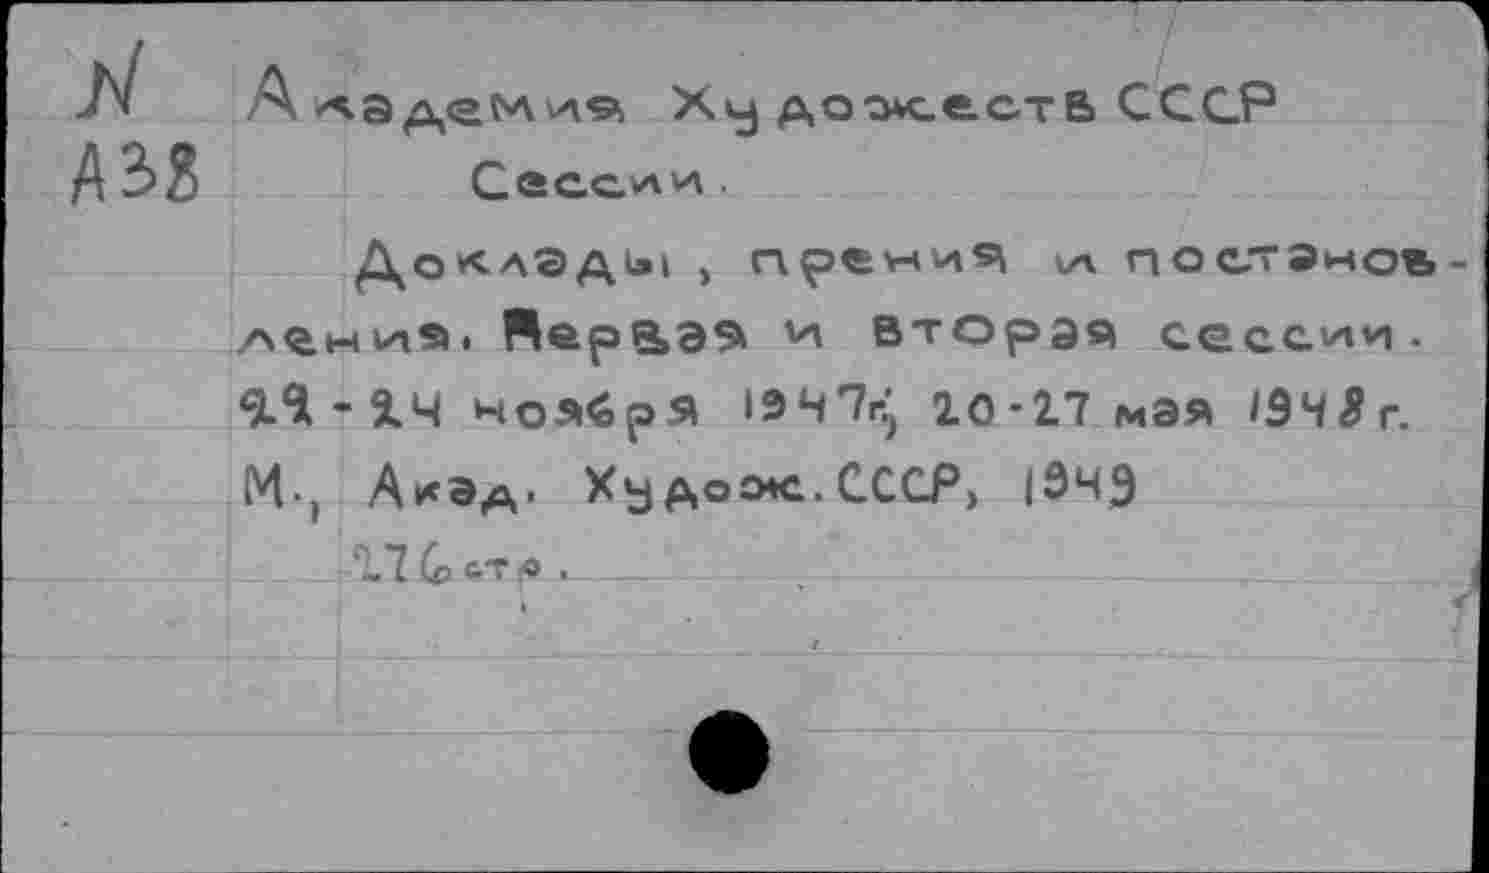 N Академия Художеств СССР
А38 Сессии.
Доклады, прения и постанов-
ления. Первая и вторая сессии.
22-24 ноября 1947г; 20-27 мая 1948г.
М., Акад. Худож. СССР, 1949
276 стр.